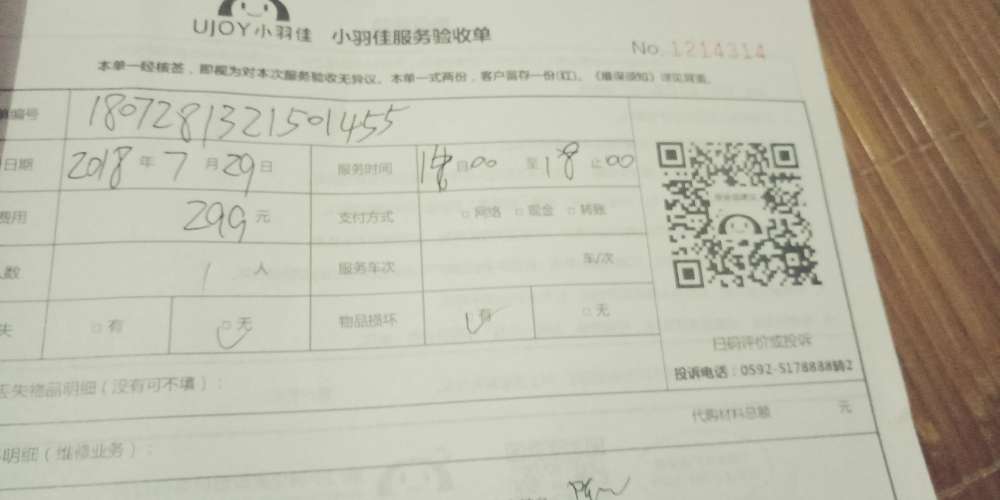 UJOY小羽佳 小羽佳服务验收单
No 1214314
本单一经核签，即视为对本次服务验收无异议。本单一式两份，客户留存一份(红)。《维保须知》详见背面。
编号 1807281321501455
日期 2018年7月29日 服务时间 自00 至18止00
费用 299元 支付方式 □网络 □现金 □转账
人数 1人 服务车次 车/次
失 □有 □无 物品损坏 □有 □无
扫码评价或投诉
投诉电话：0592-5178888转2
丢失物品明细（没有可不填）：
代购材料总额 元
明细（维修业务）：